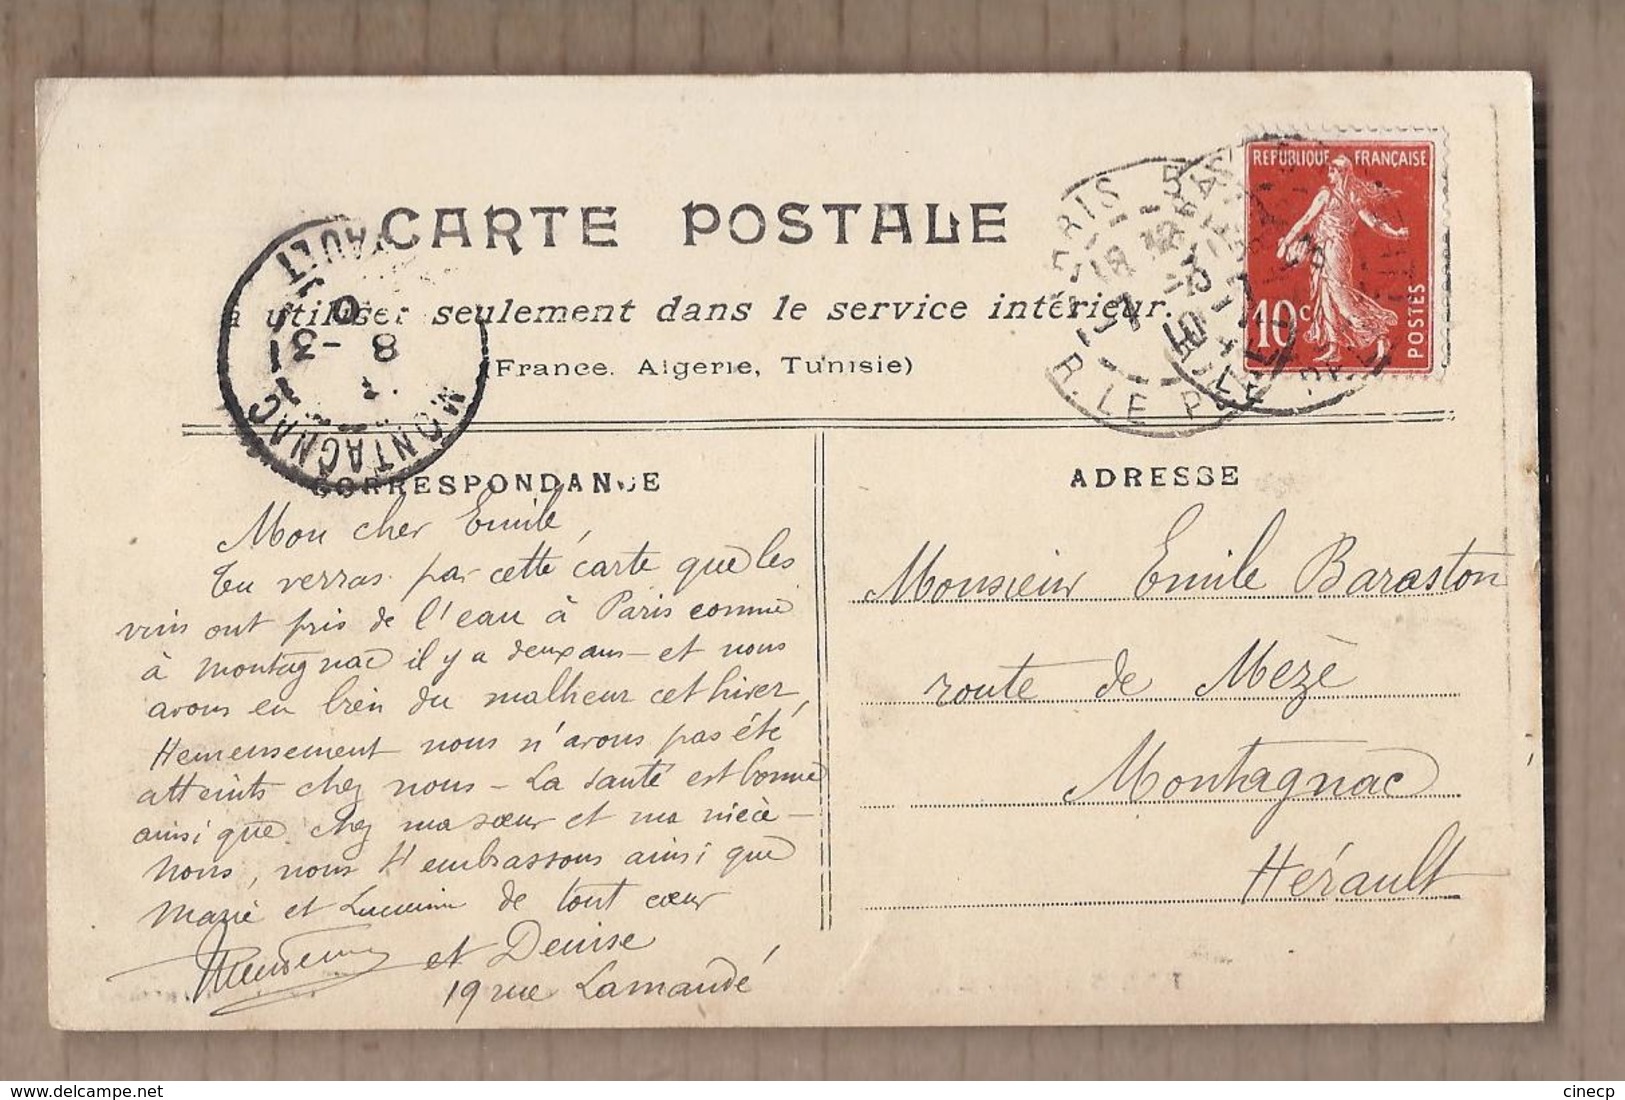 CARTE POSTALE
à utiliser seulement dans le service intérieur.
(France, Algérie, Tunisie)
REPUBLIQUE FRANÇAISE
10c
POSTES
PARIS
R. LE PELETIER
MONTAGNAC
HÉRAULT
8 -3
CORRESPONDANCE
Mon cher Emile,
Tu verras par cette carte que les
vins ont pris de l'eau à Paris comme
à Montagnac il y a deux ans - et nous
avons eu bien du malheur cet hiver,
Heureusement nous n'avons pas été
atteints chez nous - La santé est bonne
ainsi que chez ma sœur et ma nièce -
Nous, nous t'embrassons ainsi que
Marie et Lucienne de tout cœur
et Denise
19 rue Lamandé
ADRESSE
Monsieur Emile Baraston
route de Mèze
Montagnac
Hérault
cinecp